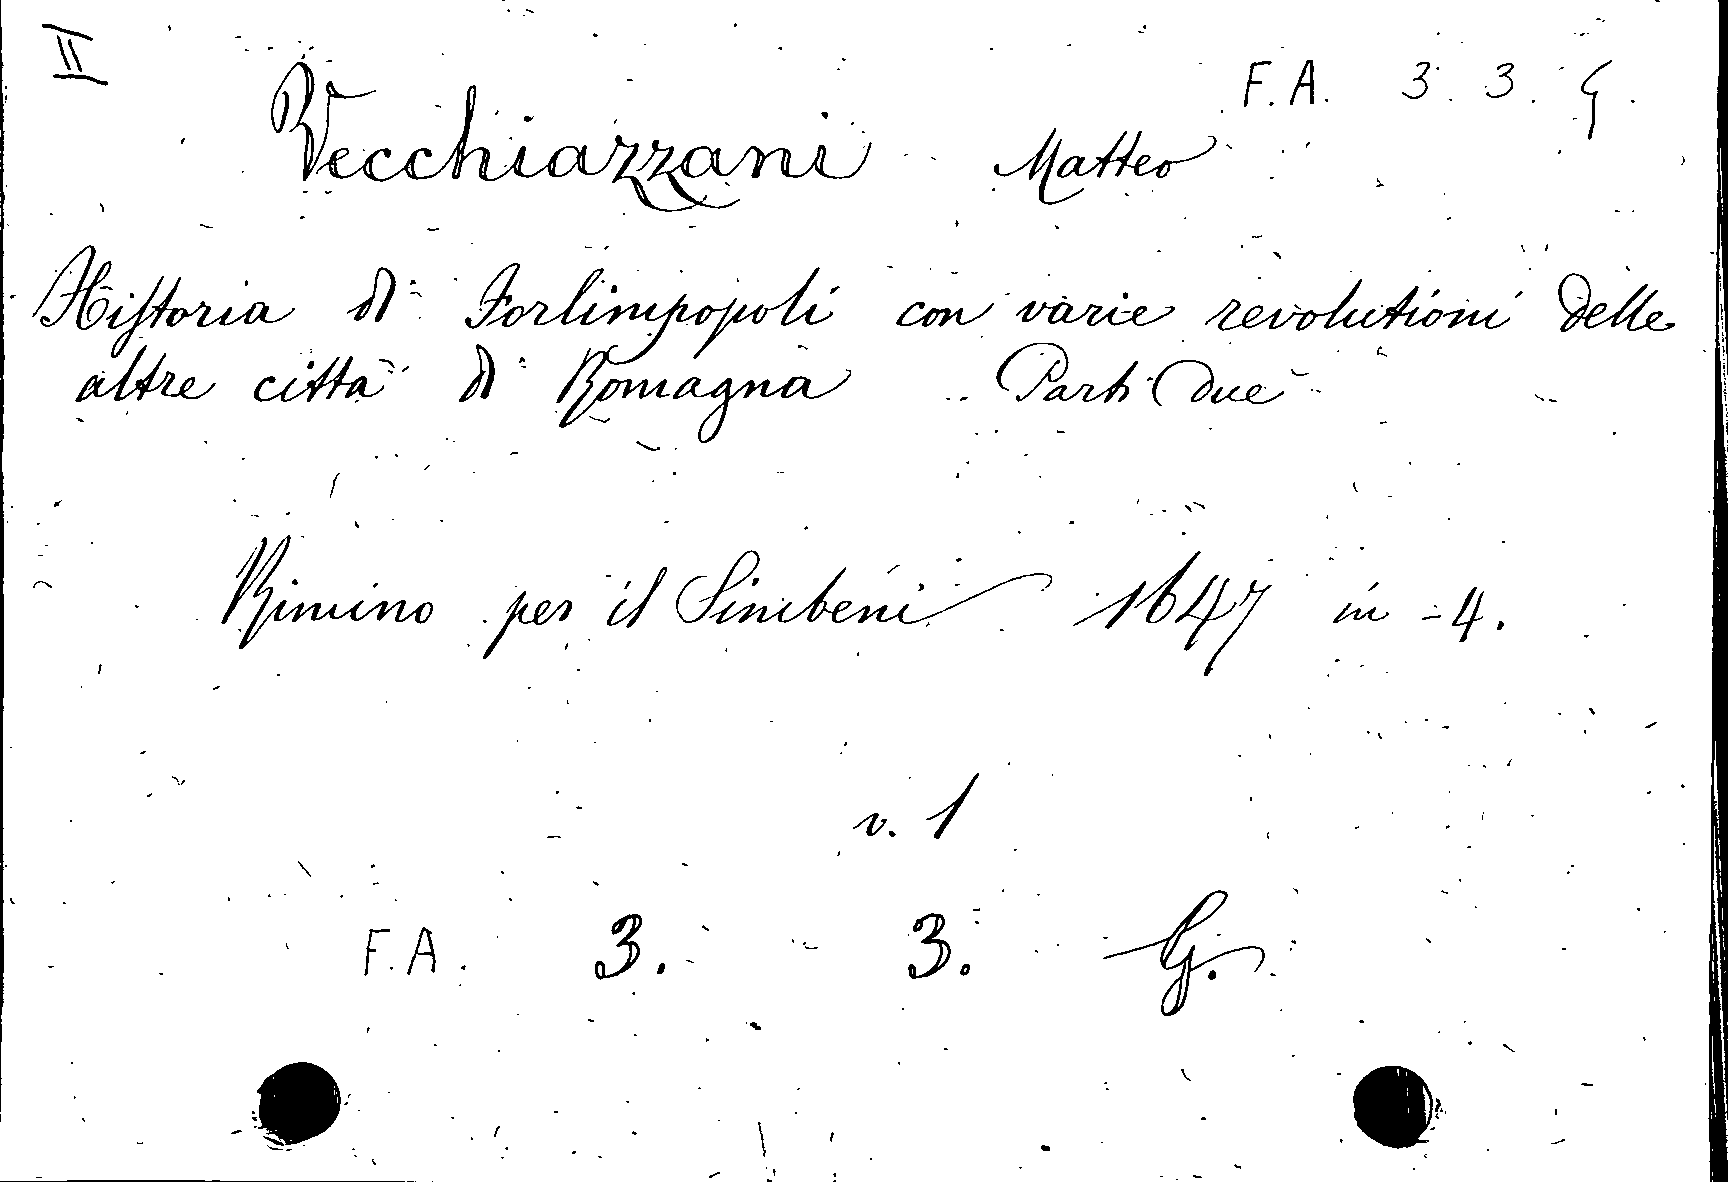 II
F. A. 3. 3. G.
Vecchiazzani Matteo
Hiſtoria di Forlimpopoli con varie revolutioni delle
altre città di Romagna Parti Due
Rimino per il Simbeni 1647 in - 4.
v. 1
F. A. 3. 3. G.